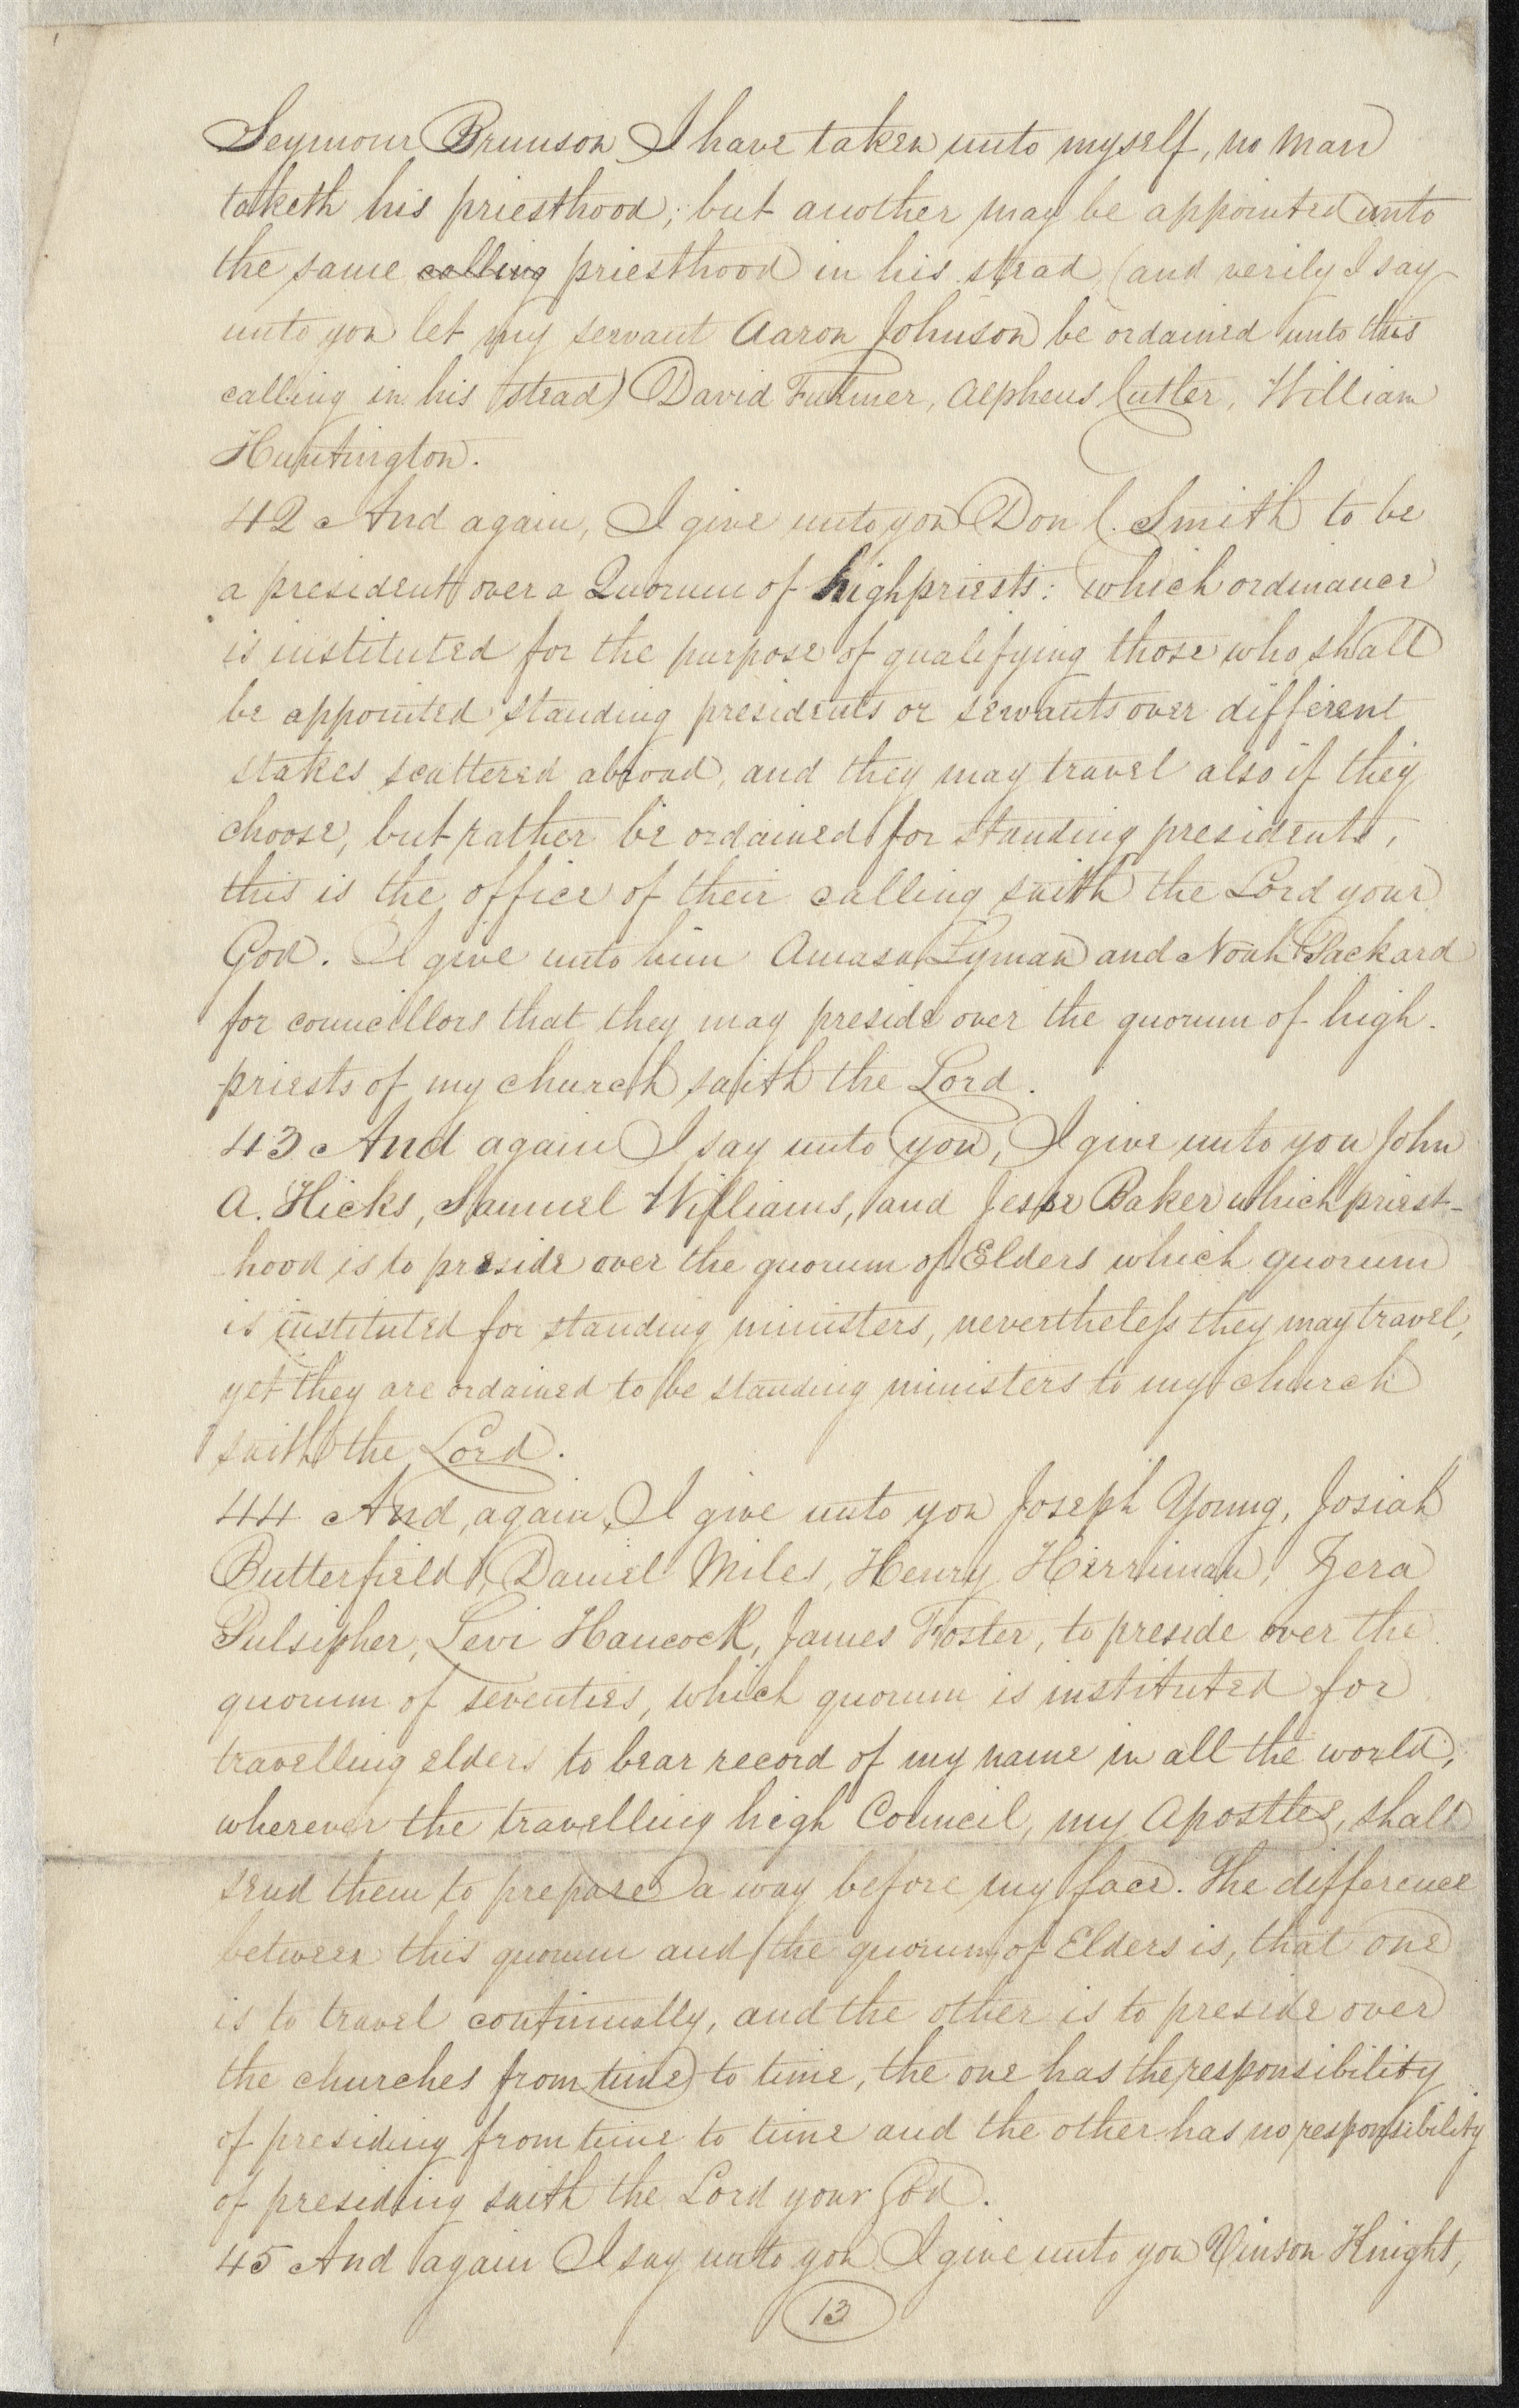 Seymour Brunson I have taken unto myself, no man
taketh his priesthood; but another may be appointed unto
the same calling priesthood in his stead, (and verily I say
unto you let my servant Aaron Johnson be ordained unto this
calling in his stead) David Fulmer, Alpheus Cutler, William
Huntington.
42 And again, I give unto you Don C. Smith to be
a president over a Quorum of high priests: which ordinance
is instituted for the purpose of qualifying those who shall
be appointed standing presidents or servants over different
stakes scattered abroad, and they may travel also if they
choose, but rather be ordained for standing presidents,
this is the office of their calling saith the Lord your
God. I give unto him Amasa Lyman and Noah Packard
for councillors that they may preside over the quorum of high-
priests of my church saith the Lord.
43 And again I say unto you, I give unto you John
A. Hicks, Samuel Williams, and Jesse Baker which priest-
hood is to preside over the quorum of Elders which quorum
is instituted for standing ministers, nevertheless they may travel,
yet they are ordained to be standing ministers to my church
saith the Lord.
44 And, again, I give unto you Joseph Young, Josiah
Butterfield, Daniel Miles, Henry Herriman, Zera
Pulsipher, Levi Hancock, James Foster, to preside over the
quorum of seventies, which quorum is instituted for
travelling elders to bear record of my name in all the world,
wherever the travelling high Council, my Apostles, shall
send them to prepare a way before my face. The difference
between this quorum and the quorum of Elders is, that one
is to travel continually, and the other is to preside over
the churches from time to time, the one has the responsibility
of presiding from time to time and the other has no responsibility
of presiding saith the Lord your God.
45 And again I say unto you I give unto you Vinson Knight,
13